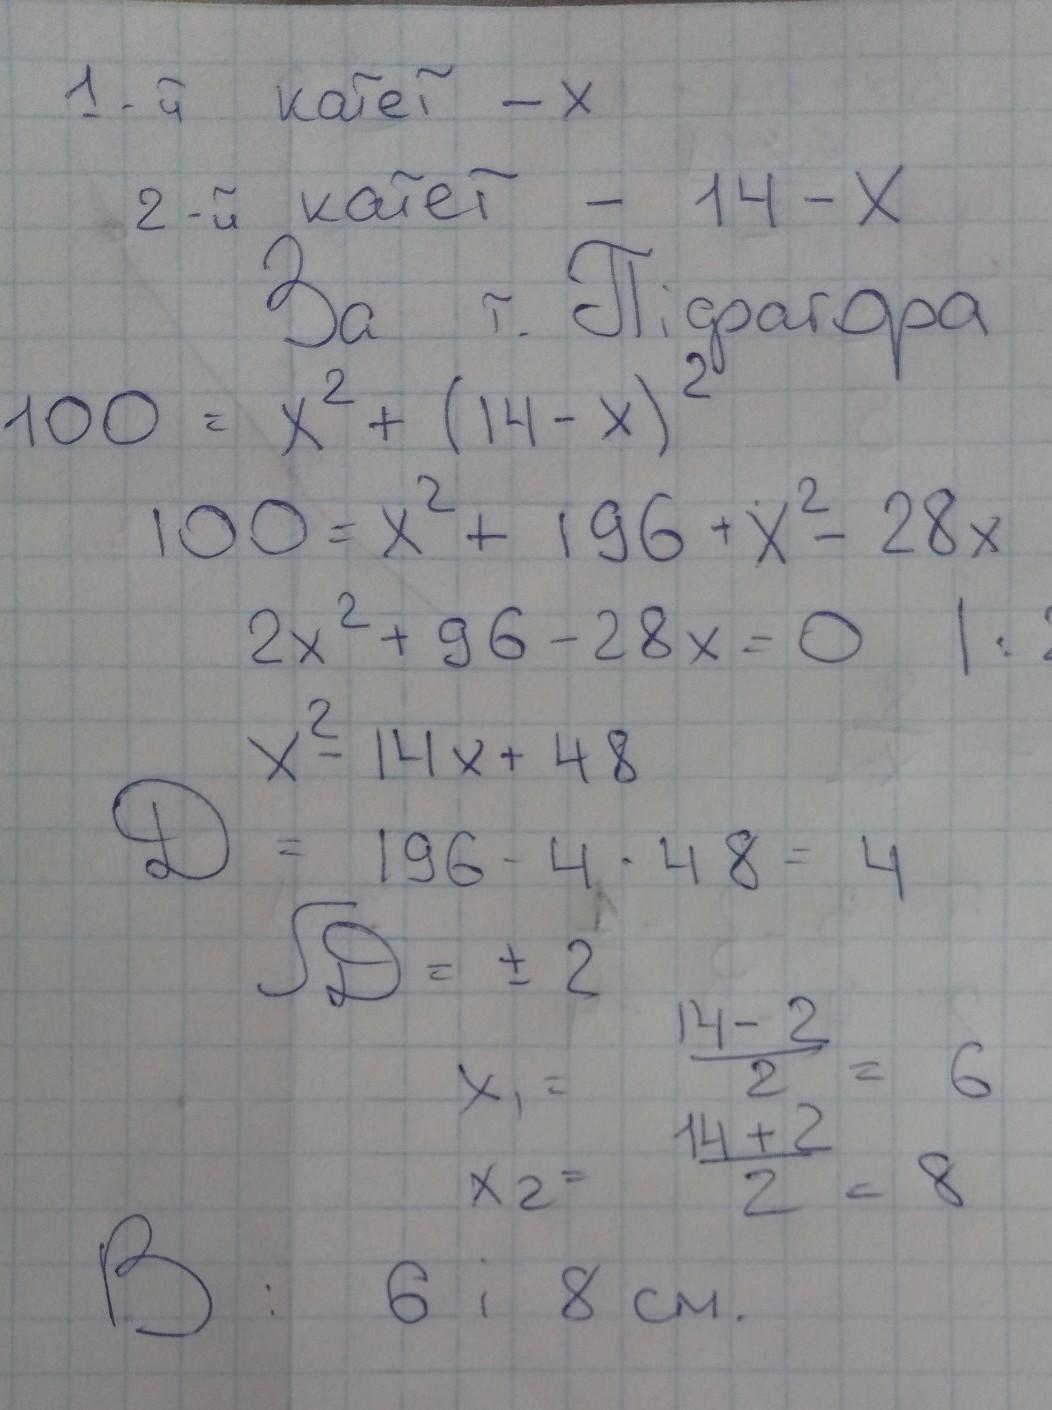 1-й катет – x
2-й катет – 14 – x
За т. Піфагора
100 = x² + (14 - x)²
100 = x² + 196 + x² - 28x
2x² + 96 - 28x = 0 | : 2
x² - 14x + 48
D = 196 - 4 · 48 = 4
√D = ± 2
x₁ = (14 - 2)/2 = 6
x₂ = (14 + 2)/2 = 8
В: 6 і 8 см.